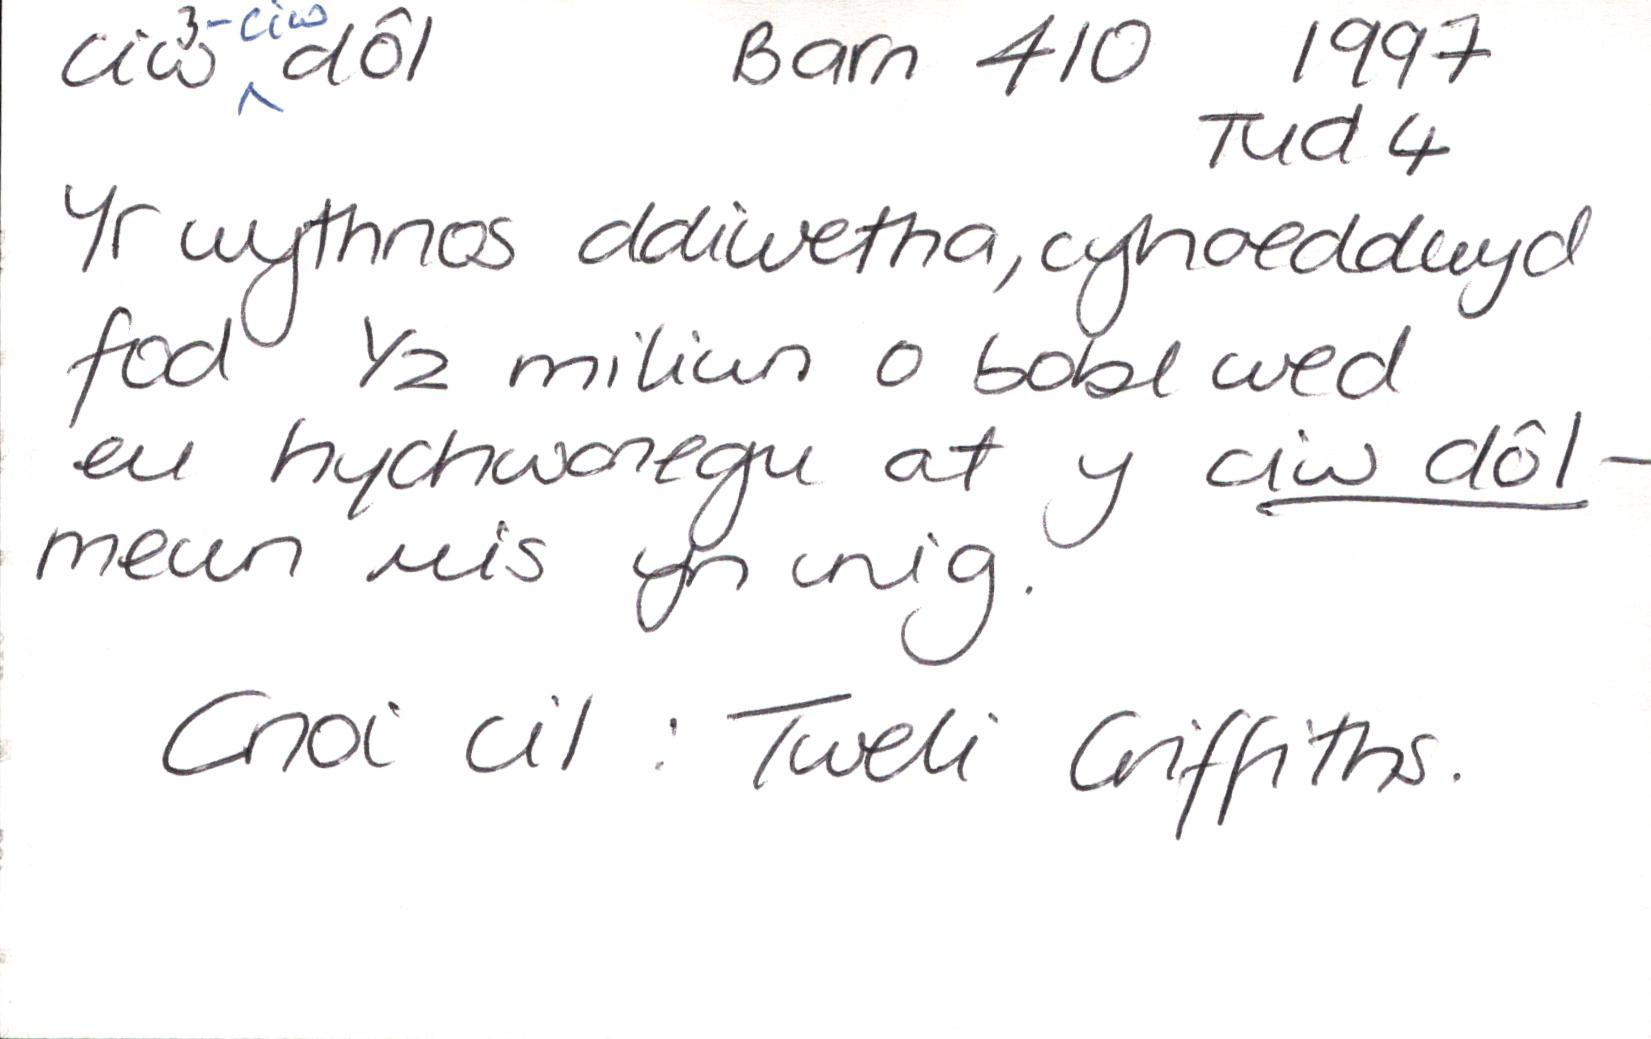 ciw³ -ciw dôl Barn 410 1997
Tud 4
Yr wythnos ddiwetha, cyhoeddwyd
fod 1/2 miliwn o bobl wed
eu hychwanegu at y ciw dôl -
mewn mis yn unig.
Cnoi cil : Tweli Griffiths.